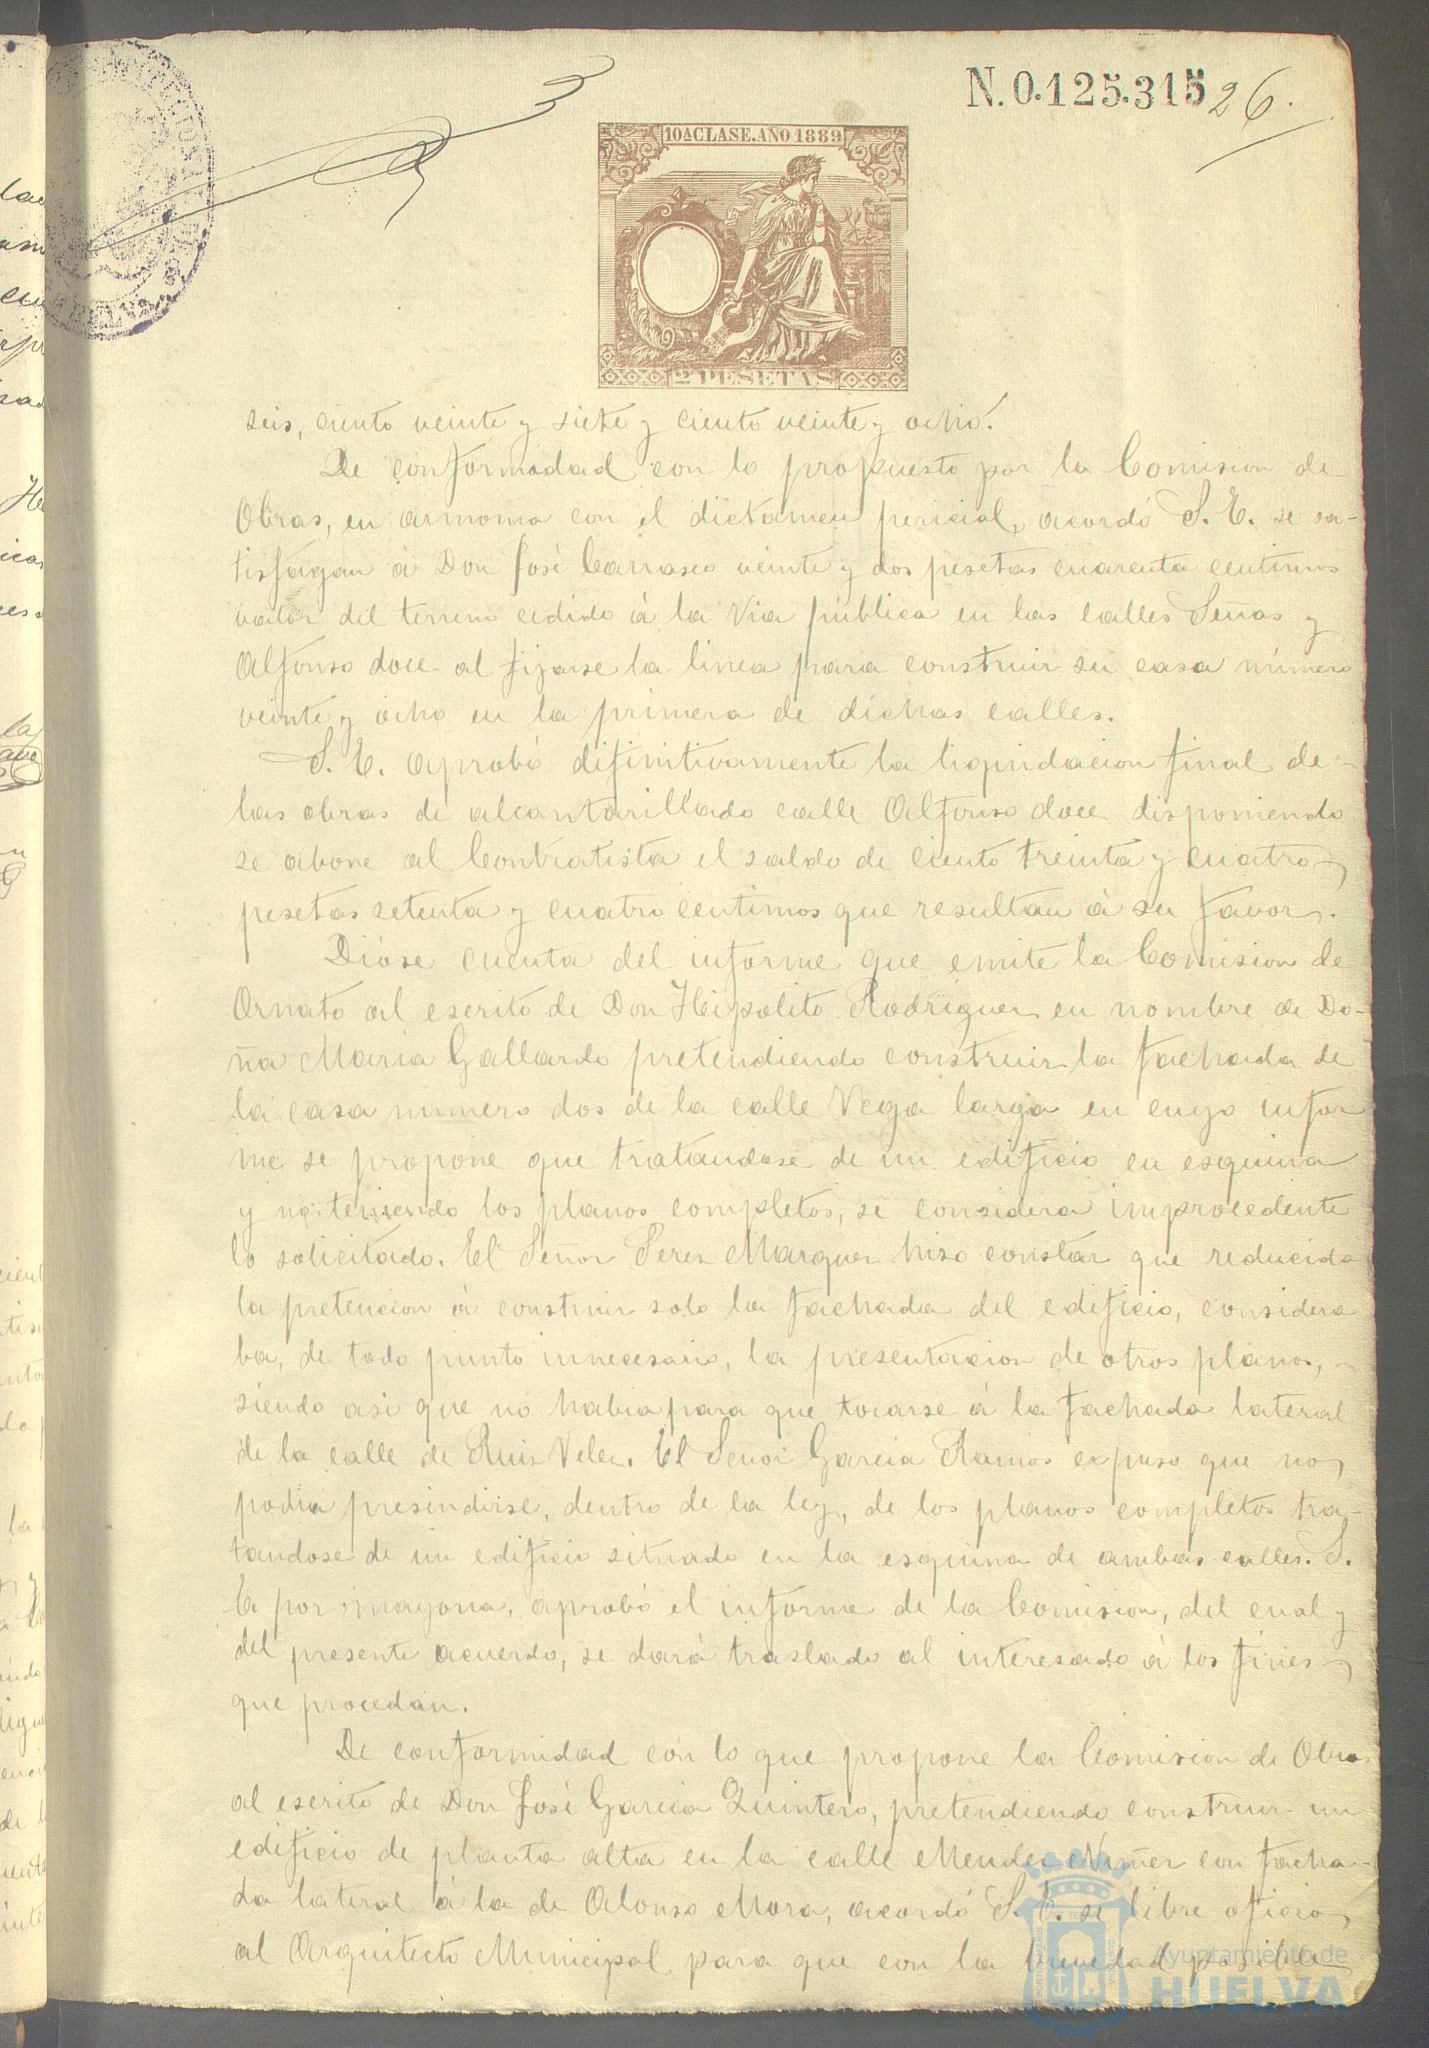 N. 0.125.315
26.
10ª CLASE. AÑO 1889
2 PESETAS
seis, ciento veinte y siete y ciento veinte y ocho.
De conformidad con lo propuesto por la Comision de
Obras, en armonia con el dictamen pericial, acordó S. E. se sa-
tisfagan á Don José Carrasco veinte y dos pesetas cuarenta centimos
valor del terreno cedido á la Via pública en las calles Señas y
Alfonso doce al fijarse la linea para construir su casa número
veinte y ocho en la primera de dichas calles.
S. E. aprobó difinitivamente la liquidacion final de
las obras de alcantarillado calle Alfonso doce disponiendo
se abone al Contratista el saldo de ciento treinta y cuatro
pesetas setenta y cuatro centimos que resultan á su favor.
Dióse cuenta del informe que emite la Comision de
Ornato al escrito de Don Hipolito Rodriguez en nombre de Do-
ña Maria Gallardo pretendiendo construir la fachada de
la casa numero dos de la calle Vega larga en cuyo infor
me se propone que tratandose de un edificio en esquina
y no teniendo los planos completos, se considera improcedente
lo solicitado. El Señor Perez Marquez hizo constar que reducida
la pretencion á construir solo la fachada del edificio, considera
ba, de todo punto innecesario, la presentacion de otros planos,
siendo asi que no habia para que tocarse á la fachada lateral
de la calle de Ruiz Velez. El Señor Garcia Ramos expuso que no
podia presindirse, dentro de la ley, de los planos completos tra-
tandose de un edificio situado en la esquina de ambas calles. S.
E. por mayoria, aprobó el informe de la Comision, del cual y
del presente acuerdo, se dará traslado al interesado á los fines
que procedan.
De conformidad con lo que propone la Comision de Obras
al escrito de Don José Garcia Quintero, pretendiendo construir un
edificio de planta alta en la calle Mendez Nuñez con facha-
da lateral á la de Alonso Mora, acordó S. E. se libre oficio
al Arquitecto Municipal para que con la brevedad posible
Ayuntamiento de
HUELVA